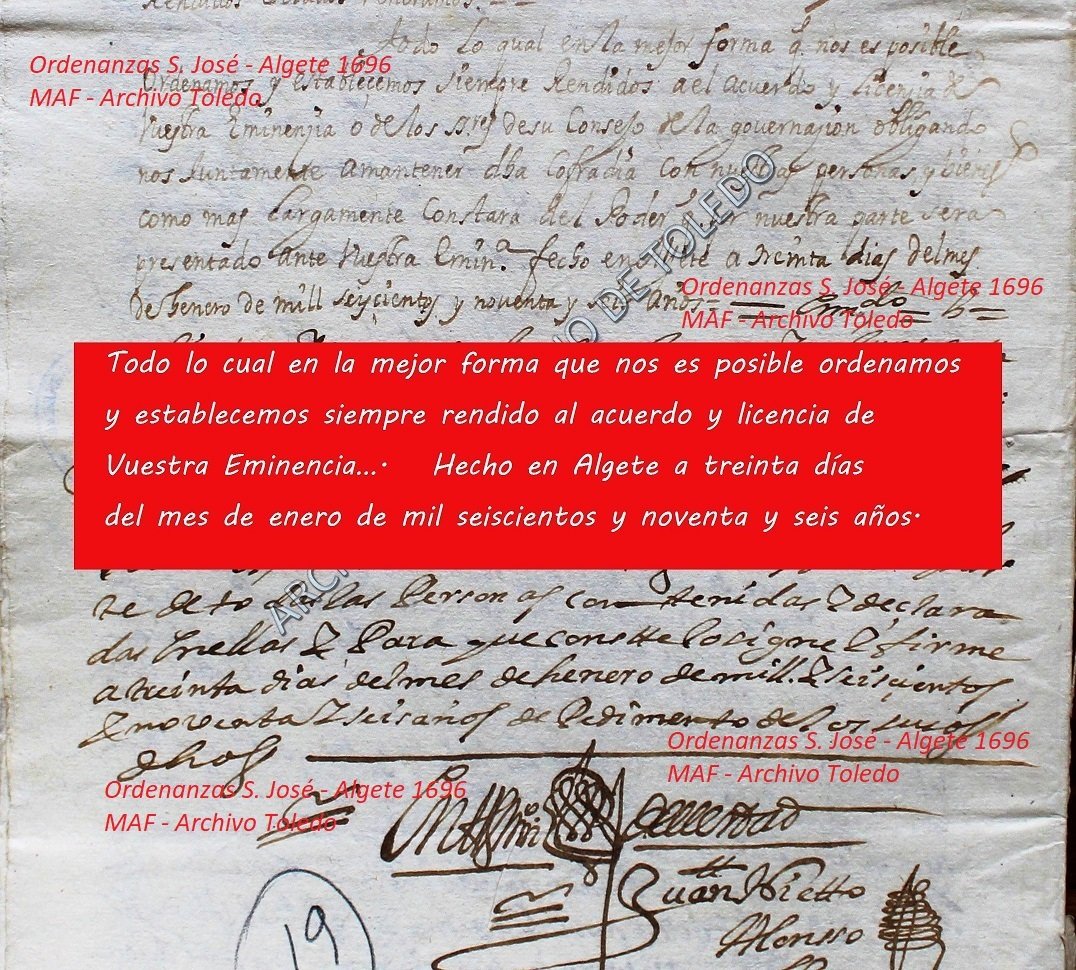 Rendidos
todo lo qual en la mejor forma q̃ nos es posible
Ordenanzas S. José - Algete 1696
Ordenamos y establecemos siempre Rendidos a el acuerdo y licencia de
MAF - Archivo Toledo
Vuestra Eminenjia o de los ssres de su Consejo de la governajion obligando
nos Juntamente a mantener dha Cofradia Con nuestras personas y bienes
como mas largamente Constara del Poder q̃ por nuestra parte sera
presentado ante Vuestra Emin.ª fecho en a treinta dias del mes
Ordenanzas S. José - Algete 1696
de henero de mill seyscientos y noventa y seis años
MAF - Archivo Toledo
Todo lo cual en la mejor forma que nos es posible ordenamos
y establecemos siempre rendido al acuerdo y licencia de
Vuestra Eminencia... . Hecho en Algete a treinta días
del mes de enero de mil seiscientos y noventa y seis años.
ARCHIVO DE TOLEDO
te de to das las Personas con tenidas Y declara
das En ellas Y Para que constte lo signe Y firme
a treinta dias del mes de henero de mill Y seiscientos
Y noventa Y seis años de Pedimento de los
dhos
Ordenanzas S. José - Algete 1696
MAF - Archivo Toledo
Ordenanzas S. José - Algete 1696
MAF - Archivo Toledo
de verdad
Juan Nietto
Alonsso
19